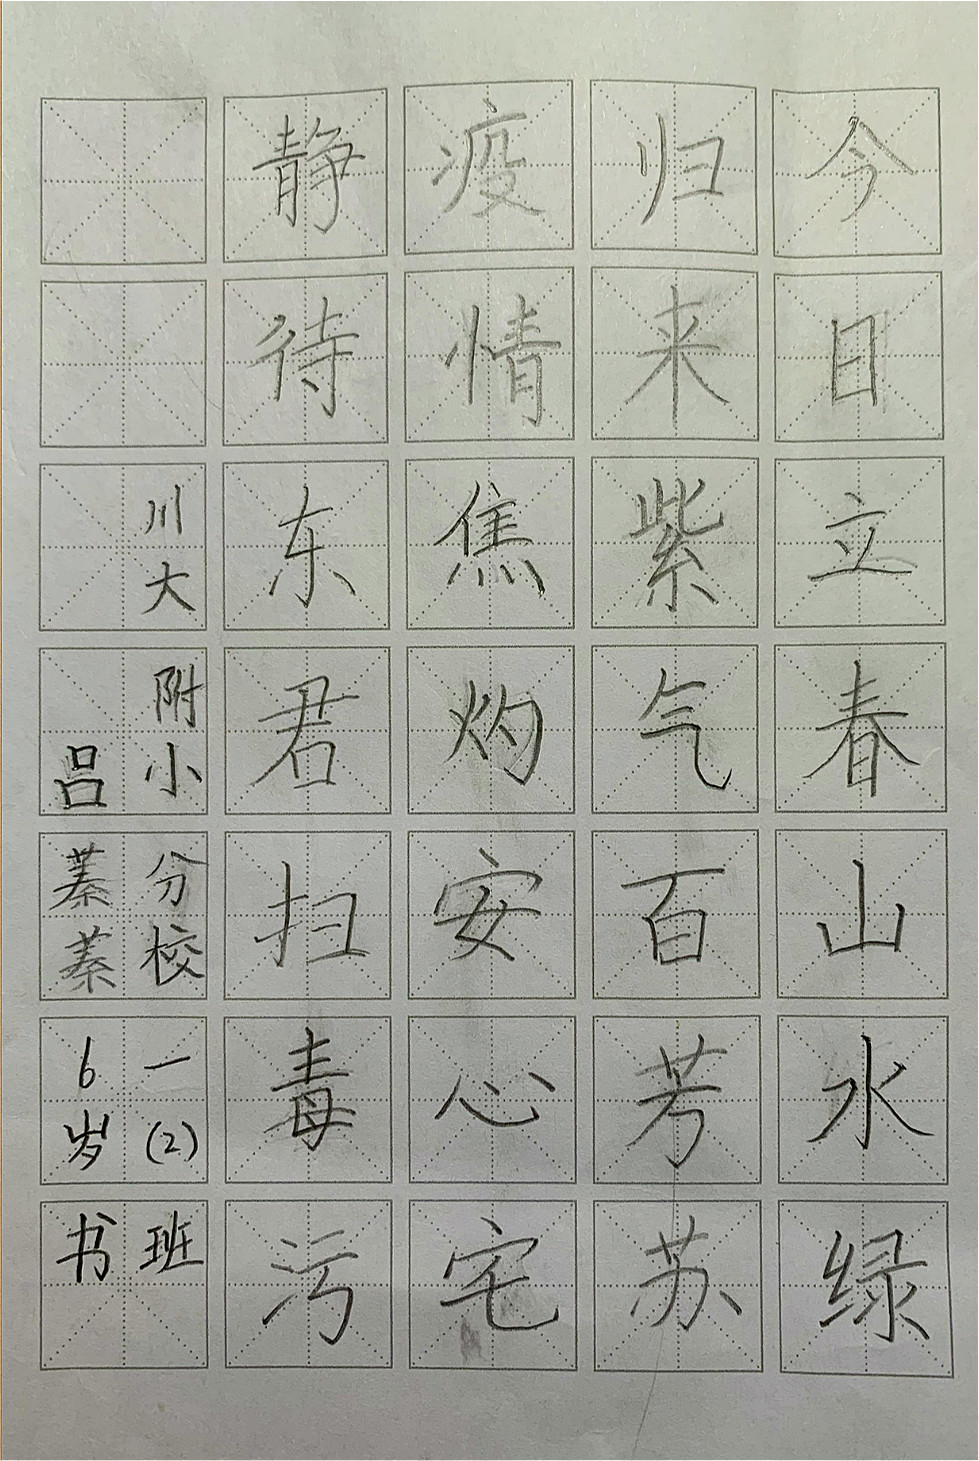 今日立春山水绿
归来紫气百芳苏
疫情焦灼安心宅
静待东君扫毒污
川大附小分校一(2)班
吕蓁蓁6岁书